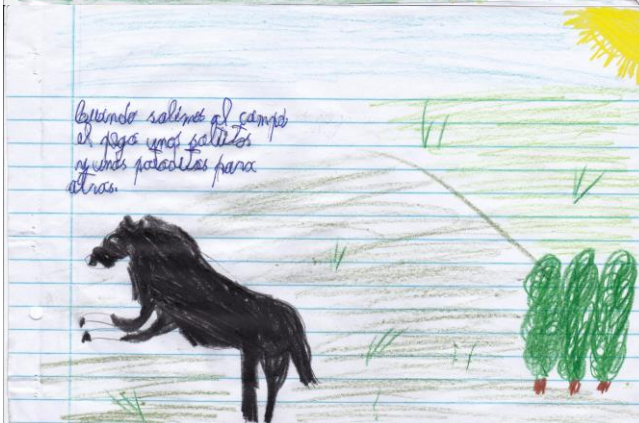 Cuando salimos al campo
el pega unos saltitos
y unas pataditas para
atras.